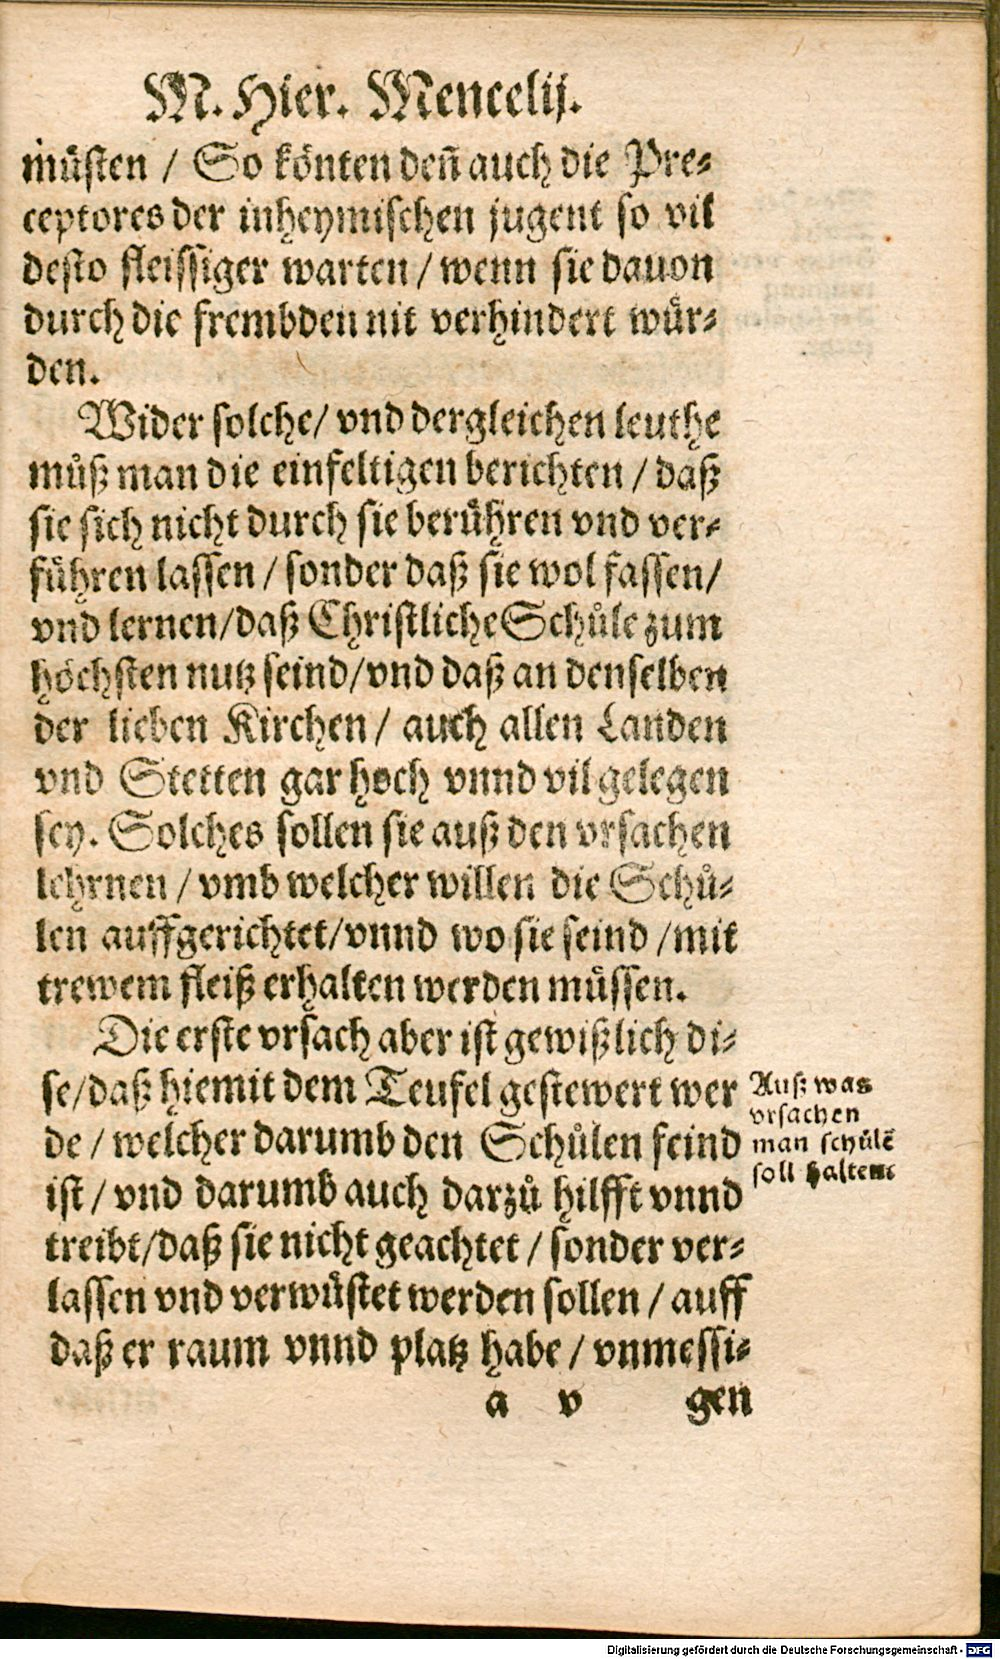 M. Hier. Mencelij.
müsten / So könten deñ auch die Pre-
ceptores der inheymischen jugent so vil
desto fleissiger warten / wenn sie dauon
durch die frembden nit verhindert wür-
den.
Wider solche / vnd dergleichen leuthe
můß man die einfeltigen berichten / daß
sie sich nicht durch sie berühren vnd ver-
führen lassen / sonder daß sie wol fassen /
vnd lernen / daß Christliche Schůle zum
höchsten nutz seind / vnd daß an denselben
der lieben Kirchen / auch allen Landen
vnd Stetten gar hoch vnnd vil gelegen
sey. Solches sollen sie auß den vrsachen
lehrnen / vmb welcher willen die Schů-
len auffgerichtet / vnnd wo sie seind / mit
trewem fleiß erhalten werden müssen.
Die erste vrsach aber ist gewißlich di-
se / daß hiemit dem Teufel gestewert wer
de / welcher darumb den Schůlen feind
ist / vnd darumb auch darzů hilfft vnnd
treibt / daß sie nicht geachtet / sonder ver-
lassen vnd verwüstet werden sollen / auff
daß er raum vnnd platz habe / vnmessi-
a v gen
Auß was
vrsachen
man schůlē
soll halten.
Digitalisierung gefördert durch die Deutsche Forschungsgemeinschaft - DFG